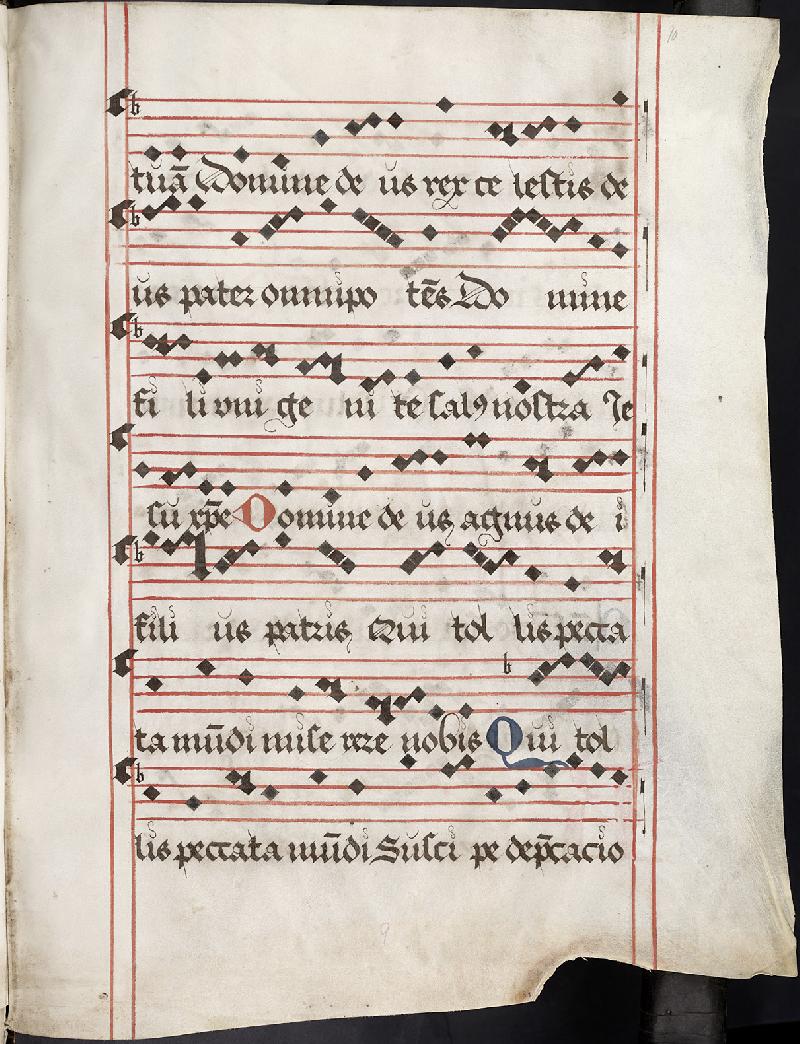 10
tuā Domine de us rex ce lestis de
us pater omnipo tēs Do mine
fi li vni ge ni te salꝯ nostra Je
su xp̄e Domine de us agnus de i
fili us patris Qui tol lis pecca
ta mūdi mise rere nobis Qui tol
lis peccata mūdi Susci pe dep̄cacio
9